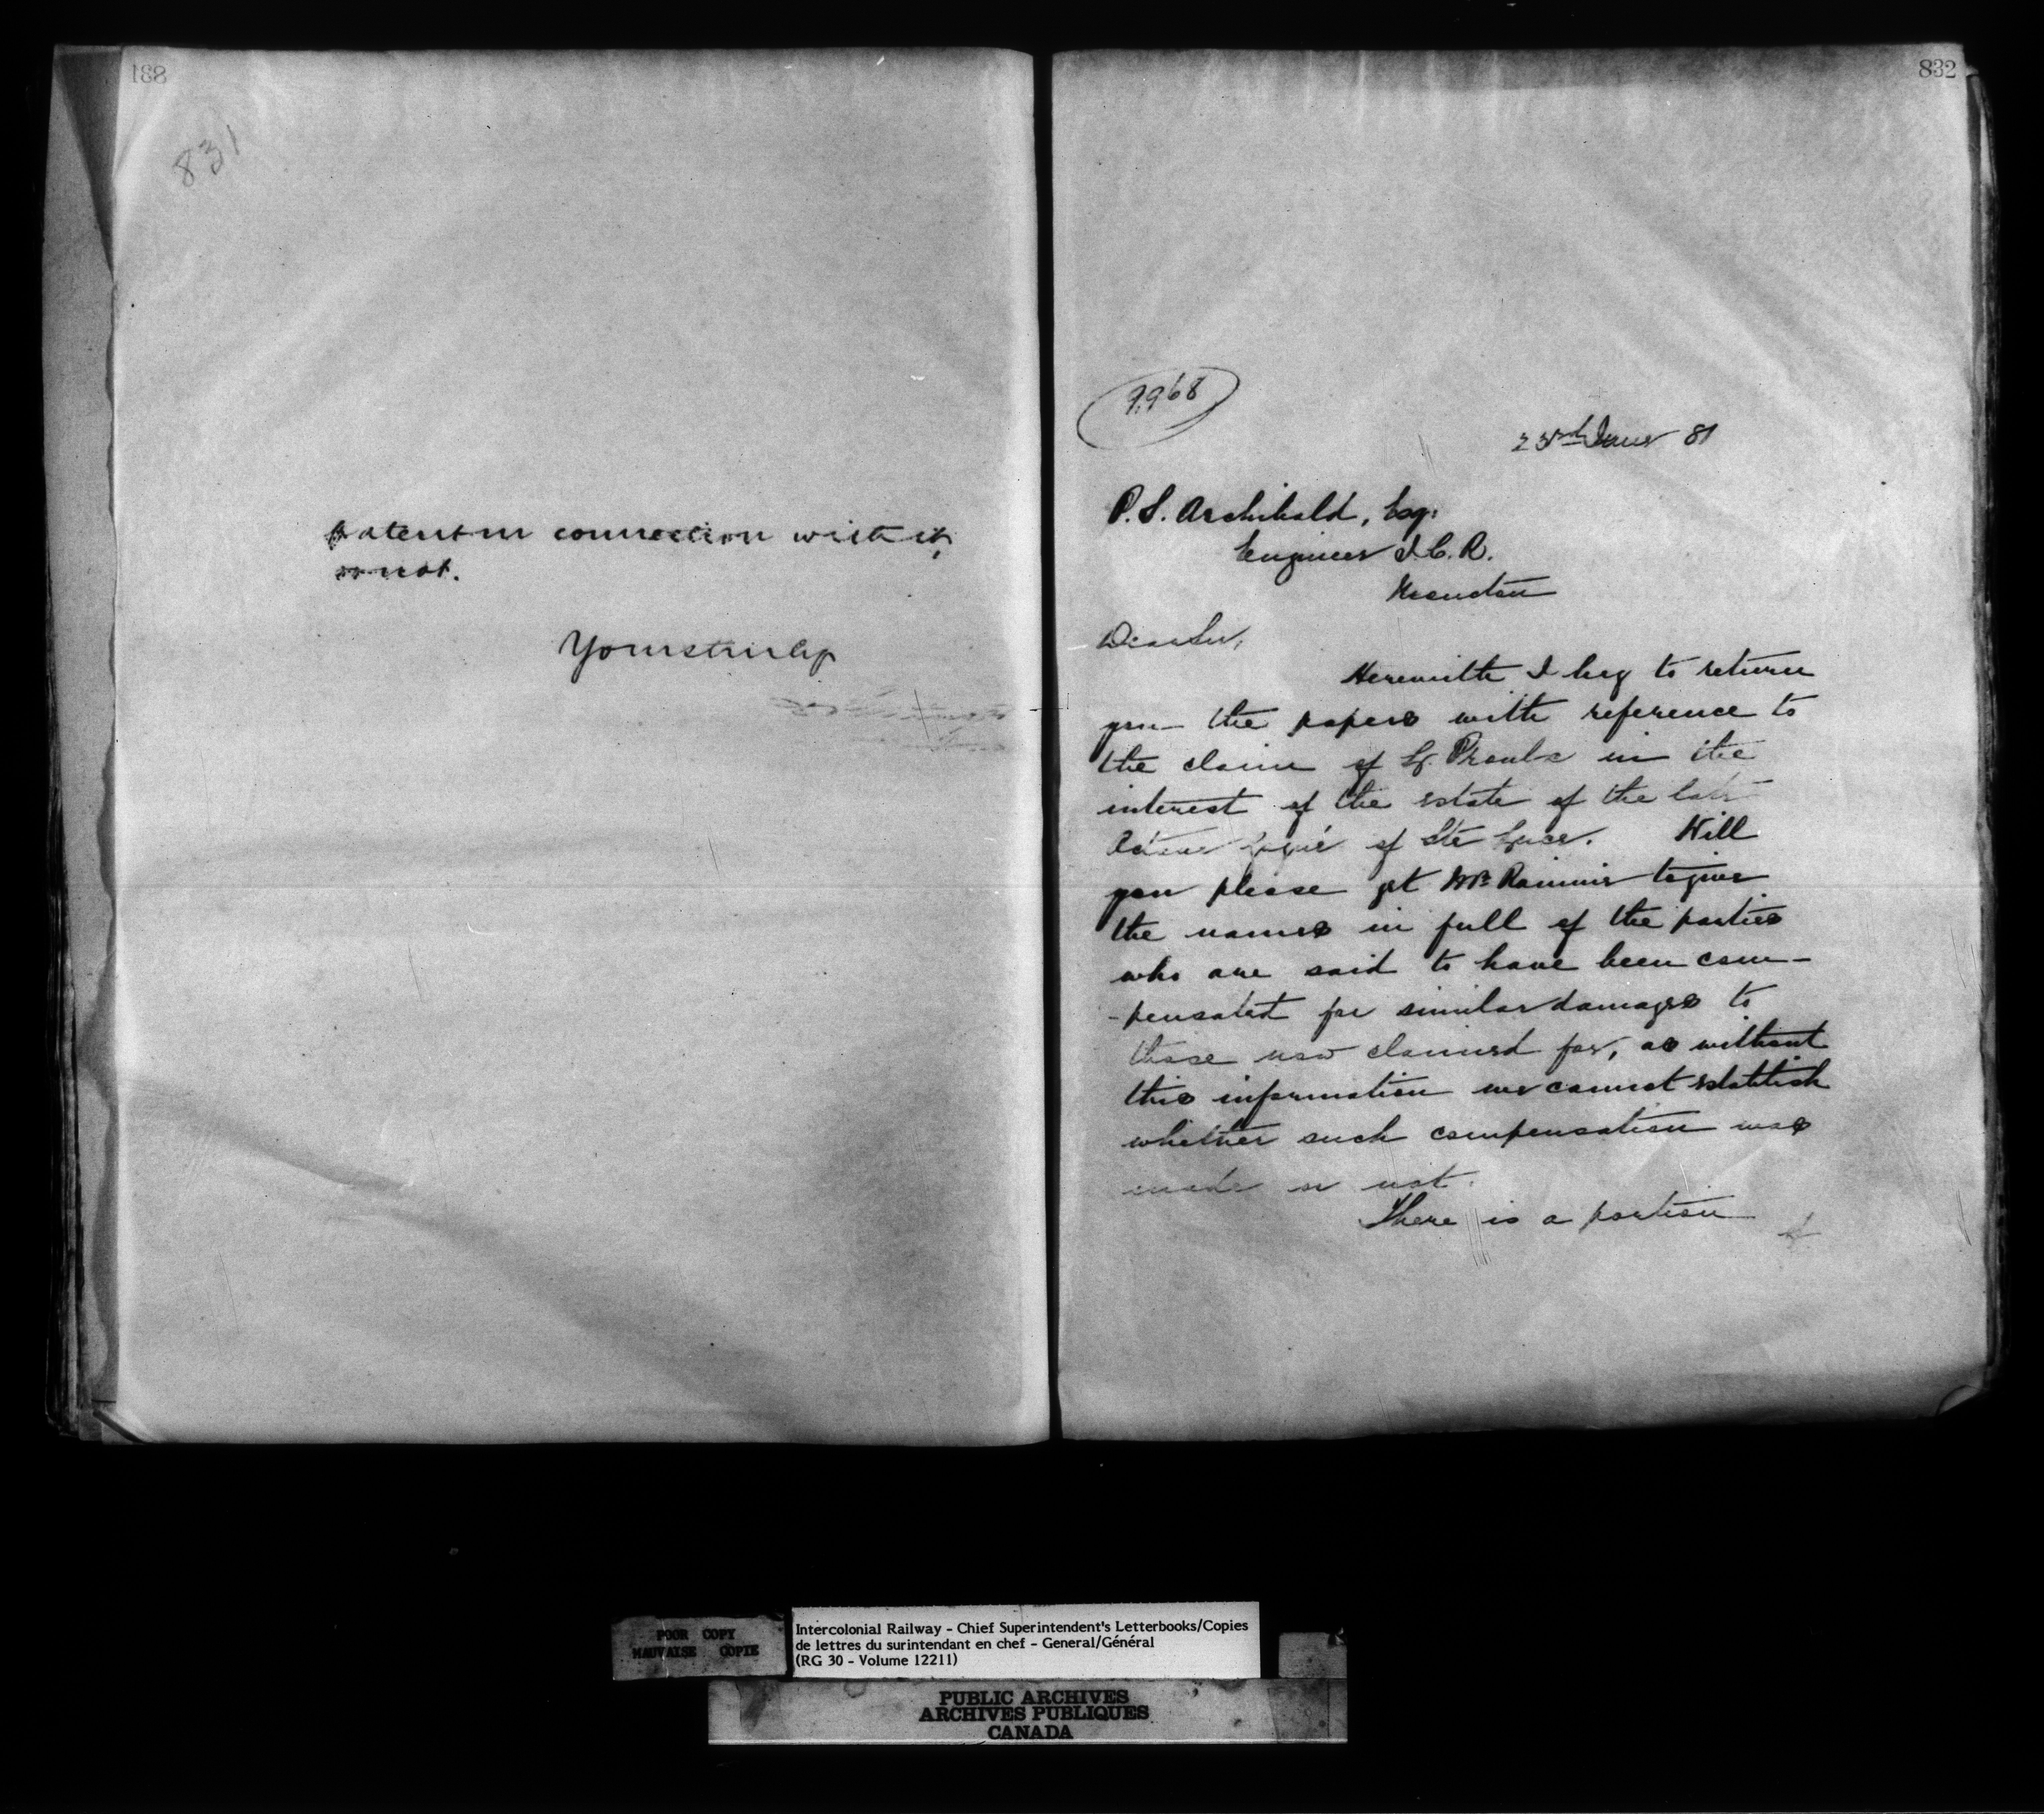 831
831
patent in connection with it,
or not.
Yours truly
832
9.968
23rd June 81
P. S. Archibald, Esq:
Engineer I. C. R.
Moncton
Dear Sir,
Herewith I beg to return
you the papers with reference to
the claim of L. Proulx in the
interest of the estate of the late
of Ste Luce. Will
you please get Mr. to give
the names in full of the parties
who are said to have been com-
-pensated for similar damages to
those now claimed for, as without
this information we cannot establish
whether such compensation was
made or not.
There is a portion
POOR COPY
MAUVAISE COPIE
Intercolonial Railway - Chief Superintendent's Letterbooks/Copies
de lettres du surintendant en chef - General/Général
(RG 30 - Volume 12211)
PUBLIC ARCHIVES
ARCHIVES PUBLIQUES
CANADA